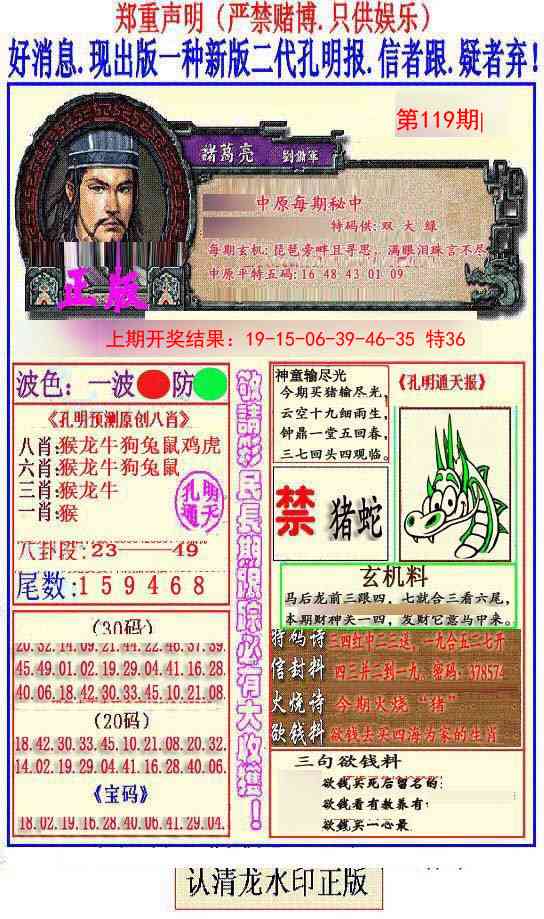 郑重声明（严禁赌博.只供娱乐）
好消息.现出版一种新版二代孔明报.信者跟.疑者弃!
第119期
諸葛亮
中原每期秘中
特码供:双 大 綠
每期玄机:琵琶旁畔且寻思，满眼泪珠言不尽
中原平特五码:16 48 43 01 09
正版
上期开奖结果：19-15-06-39-46-35 特36
波色：一波 防
《孔明预测原创八肖》
八肖:猴龙牛狗兔鼠鸡虎
六肖:猴龙牛狗兔鼠
三肖:猴龙牛
一肖:猴
孔明
通天
八卦段:23——49
尾数:159468
(30码)
20.32.14.09.21.44.22.48.37.39.
45.49.01.02.19.29.04.41.16.28
40.06.18.42.30.33.45.10.21.08
(20码)
18.42.30.33.45.10.21.08.20.32.
14.02.19.29.04.41.16.28.40.06
《宝码》
18.02.19.16.28.40.06.41.29.04.
敬請彩民長期跟踪必有大收獲！
神童输尽光
今期买猪输尽光，
云空十九细雨生，
钟鼎一堂五回春，
三七回头四观临。
《孔明通天报》
禁 猪蛇
玄机料
马后龙前三跟四，七就合三看六尾，
本期财神关一四，发财它意马中来。
特码诗 三四红中二三送，一九合五二七开
信封料 四三并二到一九。密码：378574
火烧诗 今期火烧“猪”
欲钱料 欲钱去买四海为家的生肖
三句欲钱料
欲钱买死后留名的：
欲钱看有教养有：
欲钱买一心最
认清龙水印正版